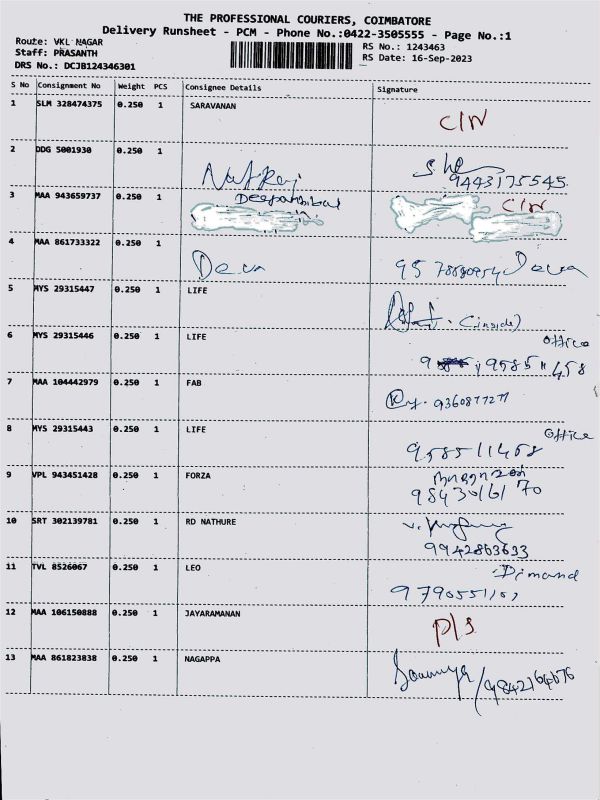 THE PROFESSIONAL COURIERS, COIMBATORE
Delivery Runsheet - PCM - Phone No.:0422-3505555 - Page No.:1
Route: VKL NAGAR
Staff: PRASANTH
DRS No.: DCJB124346301
RS No.: 1243463
RS Date: 16-Sep-2023
S No Consignment No Weight PCS Consignee Details Signature
1 SLM 328474375 0.250 1 SARAVANAN C/N
2 DDG 5001930 0.250 1
9443175545
3 MAA 943659737 0.250 1 C/N
4 MAA 861733322 0.250 1 Deva Deva
5 MYS 29315447 0.250 1 LIFE (inside)
6 MYS 29315446 0.250 1 LIFE office
958511458
7 MAA 104442979 0.250 1 FAB 9360877277
8 MYS 29315443 0.250 1 LIFE office
958511458
9 VPL 943451428 0.250 1 FORZA
9843016170
10 SRT 302139781 0.250 1 RD NATHURE
9942863633
11 TVL 8526067 0.250 1 LEO Dimand
12 MAA 106150888 0.250 1 JAYARAMANAN P/S
13 MAA 861823838 0.250 1 NAGAPPA Soumya/9842164676